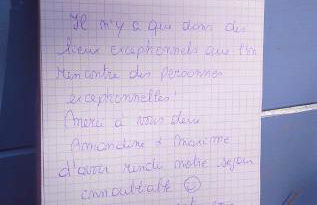 Il n'y a que dans des
lieux exceptionnels que l'on
rencontre des personnes
exceptionnelles!
Merci à vous deux
Amandine & Maxime
d'avoir rendu notre séjour
innoubliable ☺